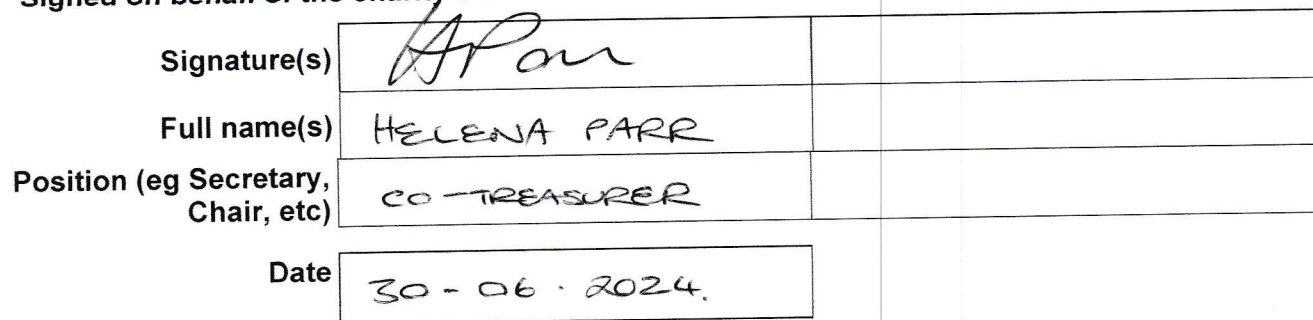 Signed on behalf of the
Signature(s) HParr
Full name(s) HELENA PARR
Position (eg Secretary,
Chair, etc) CO-TREASURER
Date 30-06.2024.